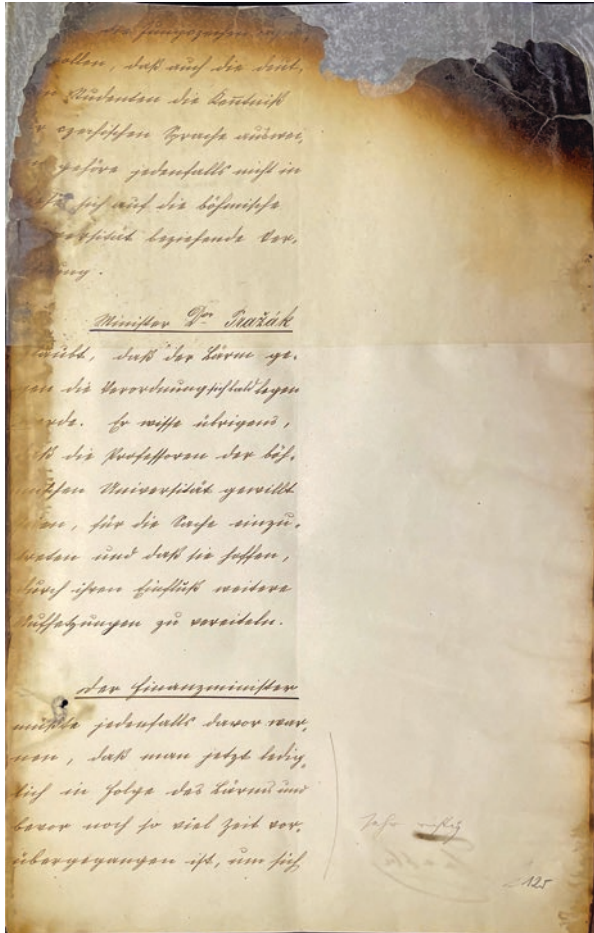 die Jungczechen
wollen, daß auch die deut-
Studenten die Kenntniß
czechischen Sprache auswei-
gehöre jedenfalls nicht in
sich auf die böhmische
versität beziehende Ver-
ung.
Minister Dr. Pražák
glaubt, daß der Lärm ge-
gen die Verordnung sich bald legen
werde. Er wisse übrigens,
daß die Professoren der böh-
mischen Universität gewillt
seien, für die Sache einzu-
treten und daß sie hoffen,
durch ihren Einfluß weitere
Aufhetzungen zu vereiteln.
Der Finanzminister
müßte jedenfalls davor war-
nen, daß man jetzt ledig-
lich in Folge des Lärms und
bevor noch so viel Zeit vor-
übergegangen ist, um sich
Sehr richtig
Taaffe
125